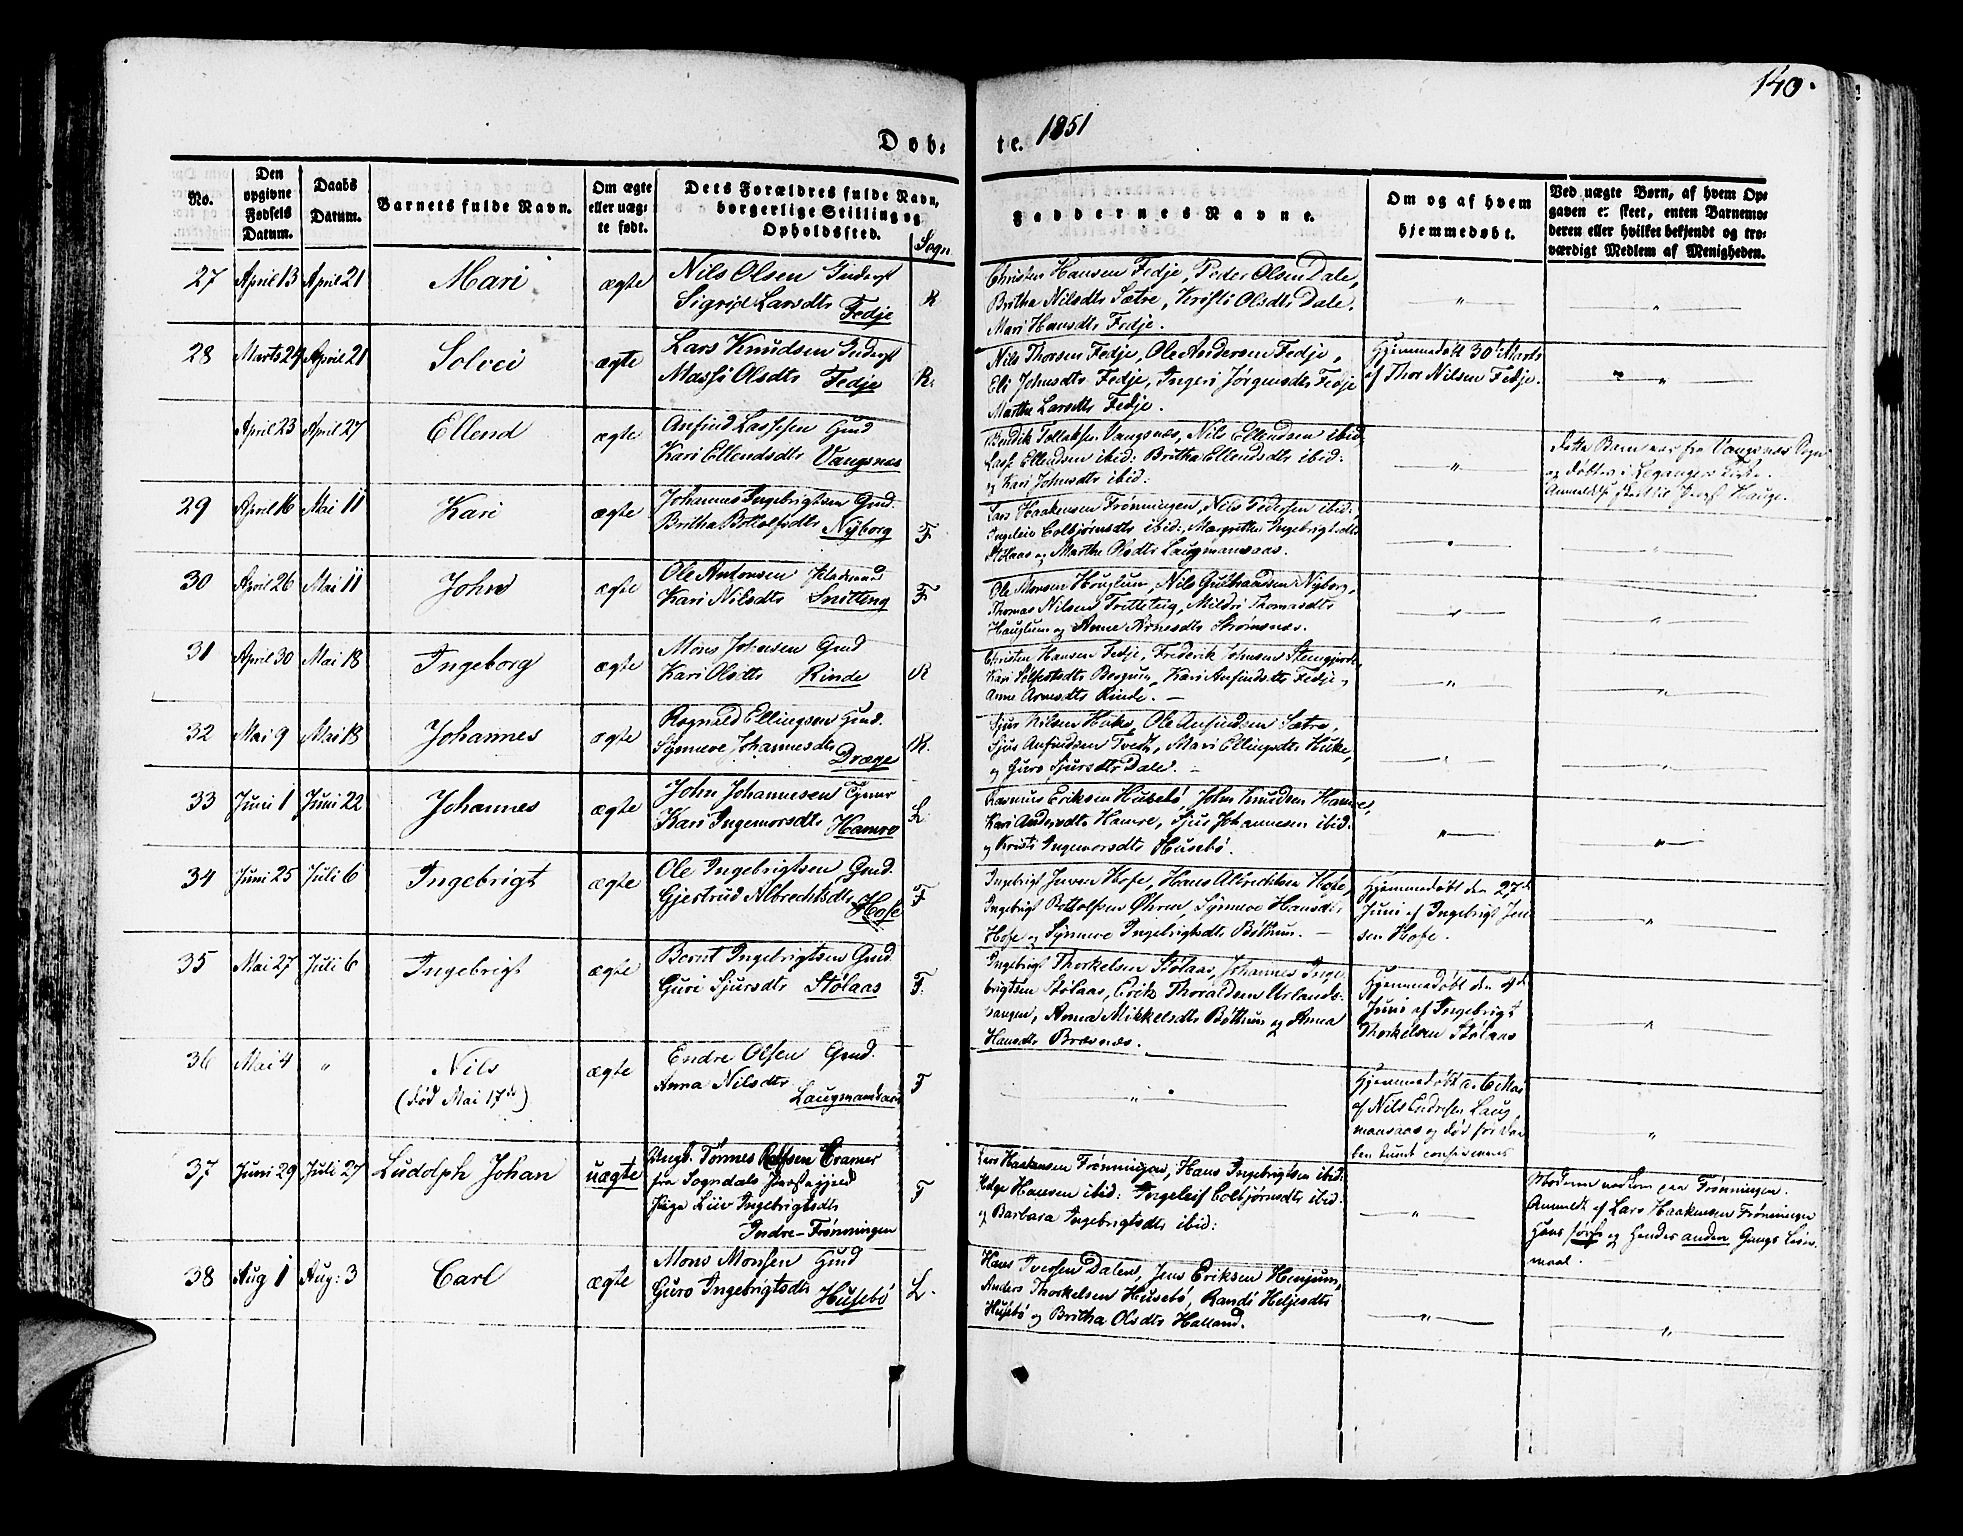 140.
Døb-
te. 1851
No.
Den
opgivne
Fødsels
Datum.
Daabs
Datum.
Barnets fulde Navn.
Om ægte
eller uæg-
te født.
Dets Forældres fulde Navn,
borgerlige Stilling og
Opholdssted.
Sogn
Faddernes Navne.
Om og af hvem
hjemmedøbt.
Ved uægte Børn, af hvem Op-
gaven er skeet, enten Barnemo-
deren eller hvilket bekjendt og tro-
værdigt Medlem af Menigheden.
27 April 13 April 21 Mari ægte
Nils Olsen
Larsdtr Fedje R
Christen Hansen Fedje, Peder Olsen Dale,
Britha Nilsdtr Sætre, Kristi Olsdtr Dale.
Mari Hansdtr Fedje.
" "
28 Marts 29 April 21 Solvei ægte
Lars Knudsen
Olsdtr Fedje R.
Nils Thorsen Fedje, Ole Andersen Fedje,
Eli Johnsdtr Fedje, Ingeri Jørgensdtr Fedje
Marthe Larsdtr Fedje.
Hjemmedøbt 30 Marts
af Thor Nilsen Fedje.
"
April 23 April 27 Ellend ægte
Anfind Lassesen Gmd
Kari Ellendsdtr Vangsnæs
Bendik Tollefsen Vangsnæs, Nils Ellendsen ibid.
Lasse Ellendsen ibid: Britha Ellendsdtr ibid:
og Kari Johnsdtr ibid:
"
Dette Barn var fra Vangsnæs Sogn
og døbtes i Leganger
29 April 16 Mai 11 Kari ægte
Johannes Ingebrigtsen Gmd.
Britha Botolfsdtr Nyborg F
Lars Haakensen Frønningen, Nils Pedersen ibid:
Ingeleiv Colbjørnsdtr ibid: Margrethe Ingebrigtsdtr
Stølaas og Marthe Olsdtr Laugmansaas.
" "
30 April 26 Mai 11 John ægte
Ole Antonsen
Kari Nilsdtr Snitting F
Ole Monsen Houglum, Nils Nyborg,
Thomas Nilsen Fretteteig, Mildri Thomasdtr
Hauglum og Anne Arnesdtr Strømsnæs.
" "
31 April 30 Mai 18 Ingeborg ægte
Mons Johnsen Gmd
Kari Olsdtr Rinde R
Christen Hansen Fedje, Frederik Johnsen
Kari Bergum, Kari Anfindsdtr Fedje,
Anne Arnesdtr Rinde.
" "
32 Mai 9 Mai 18 Johannes ægte
Rognald Ellingsen Gmd.
Synneve Johannesdtr
Dræge R.
Sjur Nilsen Huke, Ole Anfindsen Sætre,
Sjur Anfindsen Tvedt, Mari Ellingsdtr Huke,
og Guro Sjursdtr Dale.
" "
33 Juni 1 Juni 22 Johannes ægte
John Johannesen
Kari Ingemorsdtr Hamre L
Rasmus Eriksen Husebø, John Knudsen Hamre,
Kari Andersdtr Hamre, Sjur Johannesen ibid:
og Kristi Ingemorsdtr Husebø.
" "
34 Juni 25 Juli 6 Ingebrigt ægte
Ole Ingebrigtsen Gmd.
Gjertrud Albrechtsdtr
Hofe F
Ingebrigt Jensen Hofe, Hans Albrechtsen Hofe,
Ingebrigt Bottolfsen Øhren, Synneve Hansdtr
Hofe og Synneve Ingebrigtsdtr Bøthun.
Hjemmedøbt den 27de
Juni af Ingebrigt Jen
sen Hofe.
"
35 Mai 27 Juli 6 Ingebrigt ægte
Bernt Ingebrigtsen Gmd
Guri Sjursdtr Stølaas F.
Ingebrigt Thorkelsen Stølaas, Johannes Inge-
brigtsen Stølaas, Erik Thoraldsen Urlands-
vangen, Anna Mikkelsdtr Bøthun og Anna
Hansdtr Brævnæs.
Hjemmedøbt den
Juni af Ingebrigt
Thorkelsen Stølaas
"
36 Mai 4 " Nils
(død Mai 17de) ægte
Endre Olsen Gmd.
Anna Nilsdtr
Laugmansaas F
"
Hjemmedøbt d. 6 Mai
af Nils Endresen Laug
mansaas og død før
"
37 Juni 29 Juli 27 Ludolph Johan uægte
Ungk. Tønnes Cramer
fra Sogndals Præstegjeld
Pige Liiv Ingebrigtsdtr
Indre-Frønningen F
Lars Haakensen Frønningen, Hans Ingebrigtsen ibid:
Helge Hansen ibid: Ingeleif Colbjørnsdtr ibid:
og Barbara Ingebrigtsdtr ibid:
"
Moderen paa Frønningen.
Anmeldt af Lars Haakensen Frønningen
Hans første og Hendes anden Gangs Leier-
maal.
38 Aug 1 Aug: 3 Carl ægte
Mons Monsen Gmd
Guro Ingebrigtsdtr
Husebø L.
Hans Iversen Dalen, Jens Eriksen Henjum,
Anders Thorkelsen Husebø, Randi Heljesdtr
Husebø og Britha Olsdtr Halland.
" "